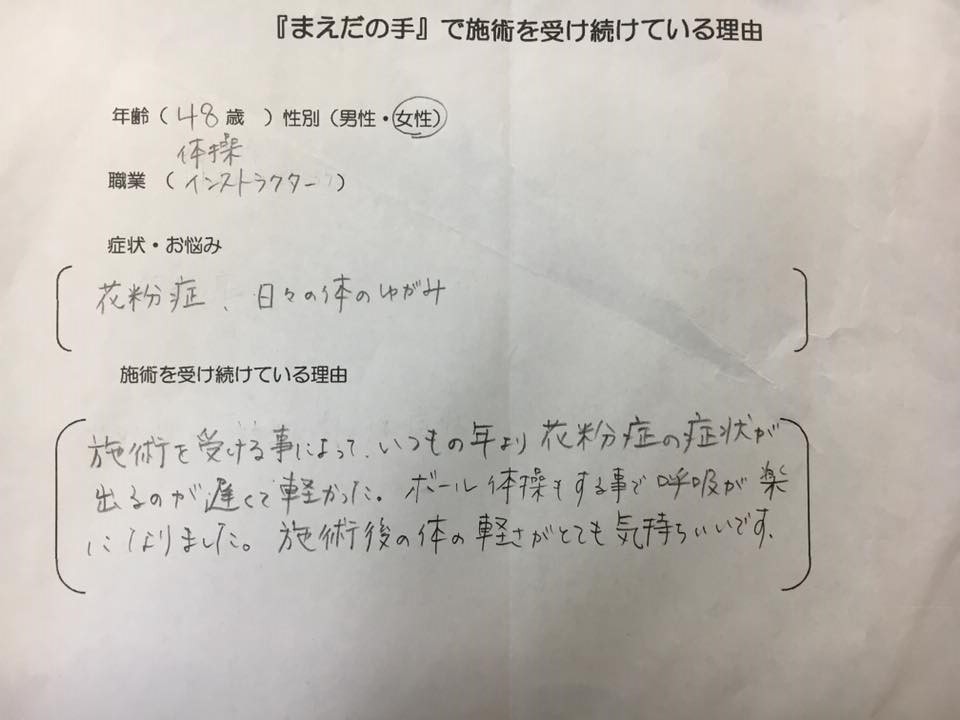 『まえだの手』で施術を受け続けている理由
年齢（48歳　）性別（男性・女性）
体操
職業　（インストラクター　）
症状・お悩み
花粉症、日々の体のゆがみ
施術を受け続けている理由
施術を受ける事によって、いつもの年より花粉症の症状が
出るのが遅くて軽かった。ボール体操もする事で呼吸が楽
になりました。施術後の体の軽さがとても気持ちいいです。